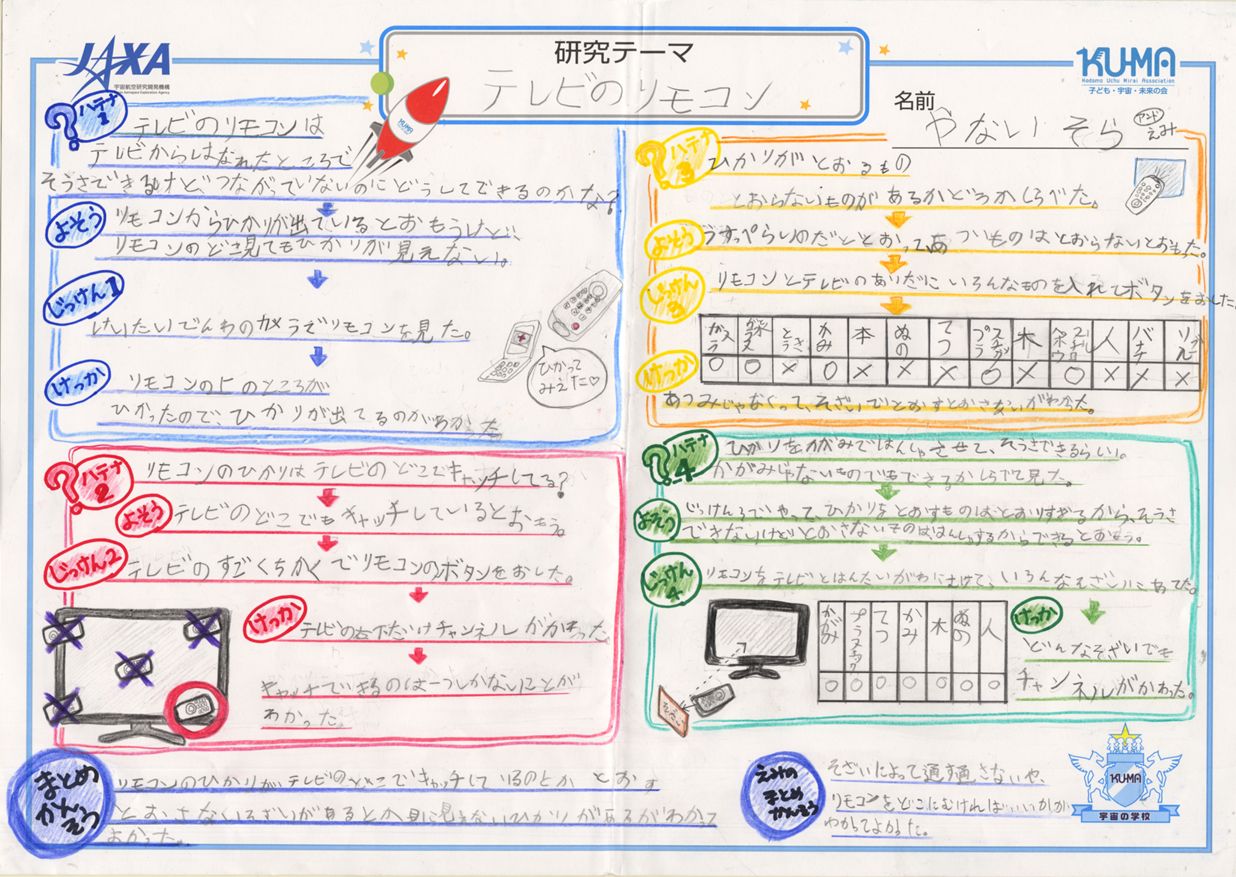 JAXA
宇宙航空研究開発機構
Japan Aerospace Exploration Agency
研究テーマ
テレビのリモコン
KU-MA
Kodomo Uchu Mirai Association
子ども・宇宙・未来の会
名前 やない そら アンド えみ
ハテナ1
テレビのリモコンは
テレビからはなれたところで
そうさできるけど、つながっていないのにどうしてできるのかな?
よそう
リモコンからひかりが出ているとおもうけど、
リモコンのどこ見てもひかりが見えない。
じっけん1
けいたいでんわのカメラでリモコンを見た。
ひかって
みえた♡
けっか
リモコンの上のところが
ひかったので、ひかりが出てるのがわかった
?ハテナ2
リモコンのひかりはテレビのどこでキャッチしてる?
よそう
テレビのどこでもキャッチしているとおもう。
じっけん2
テレビのすごくちかくでリモコンのボタンをおした。
けっか
テレビの右下だけチャンネルがかわった。
キャッチできるのは一つしかないことが
わかった。
?ハテナ3
ひかりがとおるもの
とおらないものがあるかどうかしらべた。
よそう
うすっぺらいのだととおって、あついものはとおらないとおもった。
じっけん3
リモコンとテレビのあいだにいろんなものを入れてボタンをおした。
けっか
ガラス かみ 本 ぬの てつ プラスチック 木 人 バナナ
○ ○ × ○ × × × ○ × ○ × × ×
あつみじゃなくって、そざいでとおすとおさないがわかった。
?ハテナ4
ひかりをかがみではんしゃさせて、そうさできるらしい。
かがみじゃないものでもできるかしらべて見た。
よそう
じっけん3でやって、ひかりをとおすものはとおりすぎるから、そうさ
できないけどとおさないものははんしゃするからできるとおもう。
じっけん4
リモコンをテレビとはんたいがわにむけて、いろんなそざいにあてた。
かがみ プラスチック てつ かみ 木 ぬの 人
○ ○ ○ ○ ○ ○ ○
けっか
どんなそざいでも
チャンネルがかわった。
まとめ
かんそう
リモコンのひかりがテレビのどこでキャッチしているのとか とおす
とおさないそざいがあるとか目に見えないひかりがあるがわかって
よかった。
えみの
まとめ
かんそう
そざいによって通す通さないや、
リモコンをどこにむければいいかが
わかってよかった。
KU-MA
宇宙の学校